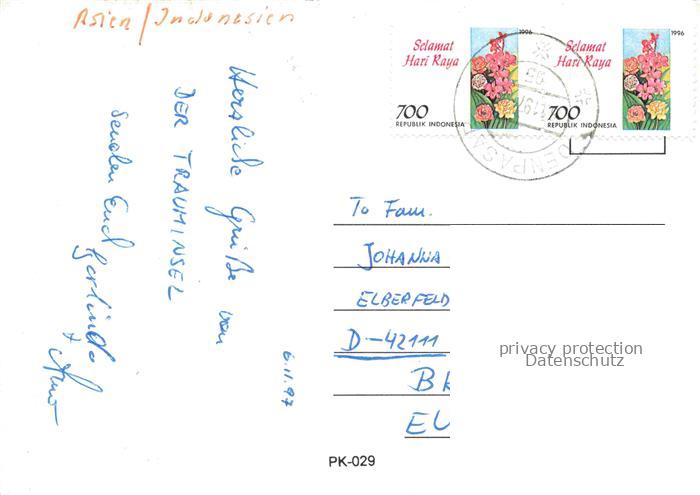 Asien / Indonesien
Herzliche Grüße von
DER TRAUMINSEL
senden Euch Gerlinde
+ Arno
6.11.97
Selamat
Hari Raya
1996
700
REPUBLIK INDONESIA
Selamat
Hari Raya
1996
700
REPUBLIK INDONESIA
DENPASA
To Fam.
JOHANNA
ELBERFELD
D-42111
EU
privacy protection
Datenschutz
PK-029